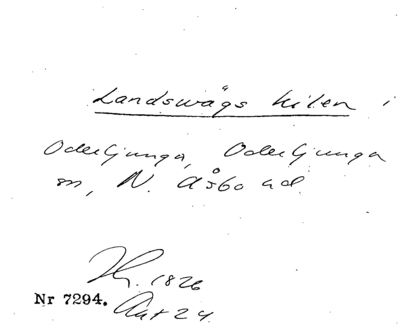 Landswägs kilen i
Oderljunga, Oderljunga
sn, N. Åsbo hd.
1826
Nr 7294. Akt 24